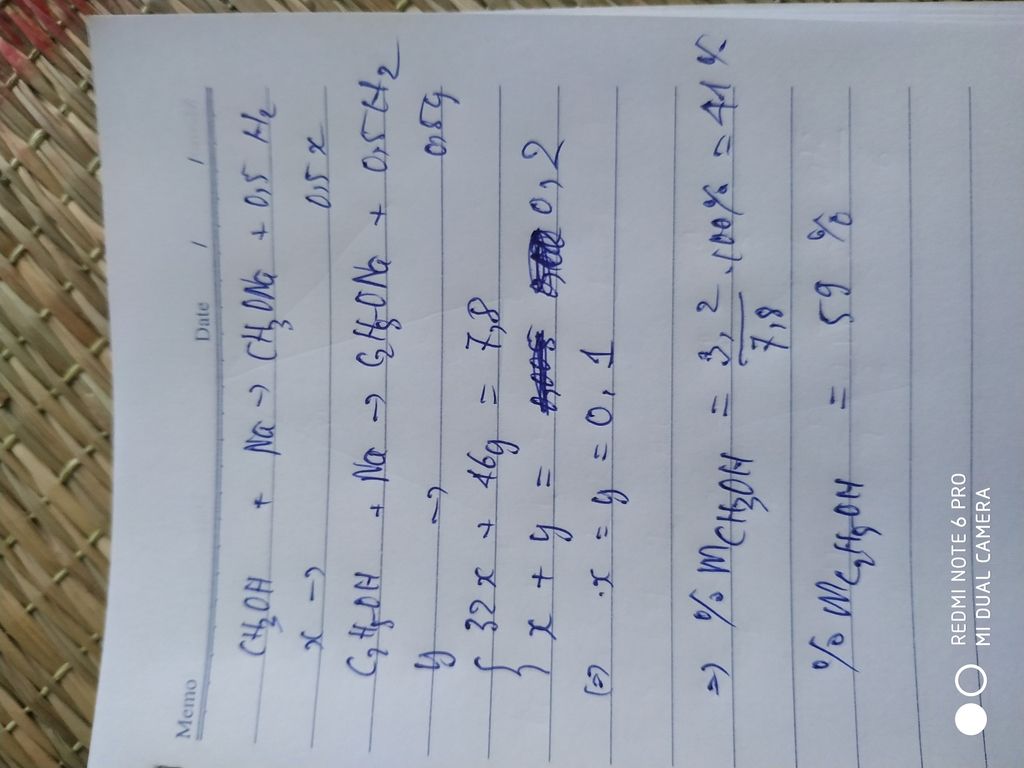 Memo
Date / /
CH3OH + Na → CH3ONa + 0,5 H2
x → 0,5 x
C2H5OH + Na → C2H5ONa + 0,5 H2
y → 0,5y
{ 32x + 46y = 7,8
x + y = 0,2
(=) x = y = 0,1
=) % mCH3OH = 3,2/7,8 .100% = 41 %
% mC2H5OH = 59 %
REDMI NOTE 6 PRO
MI DUAL CAMERA